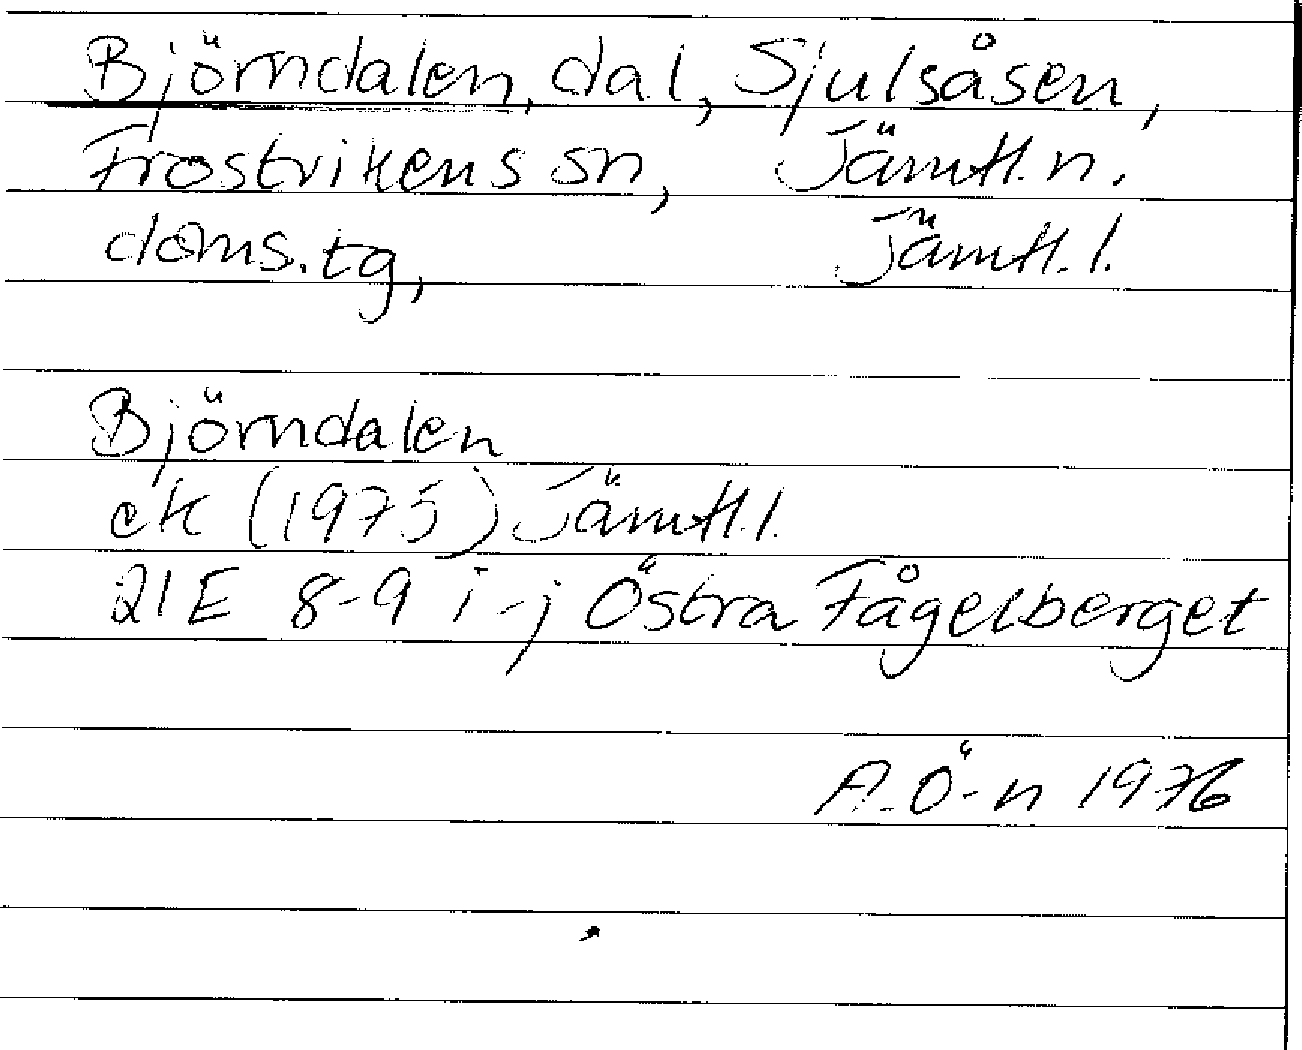 Björndalen, dal, Sjulsåsen,
Frostvikens sn, Jämtl. n.
doms. tg, Jämtl. l.
Björndalen
ek (1975) Jämtl. l.
21E 8-9 i-j Östra Fågelberget
A. Ö-n 1976